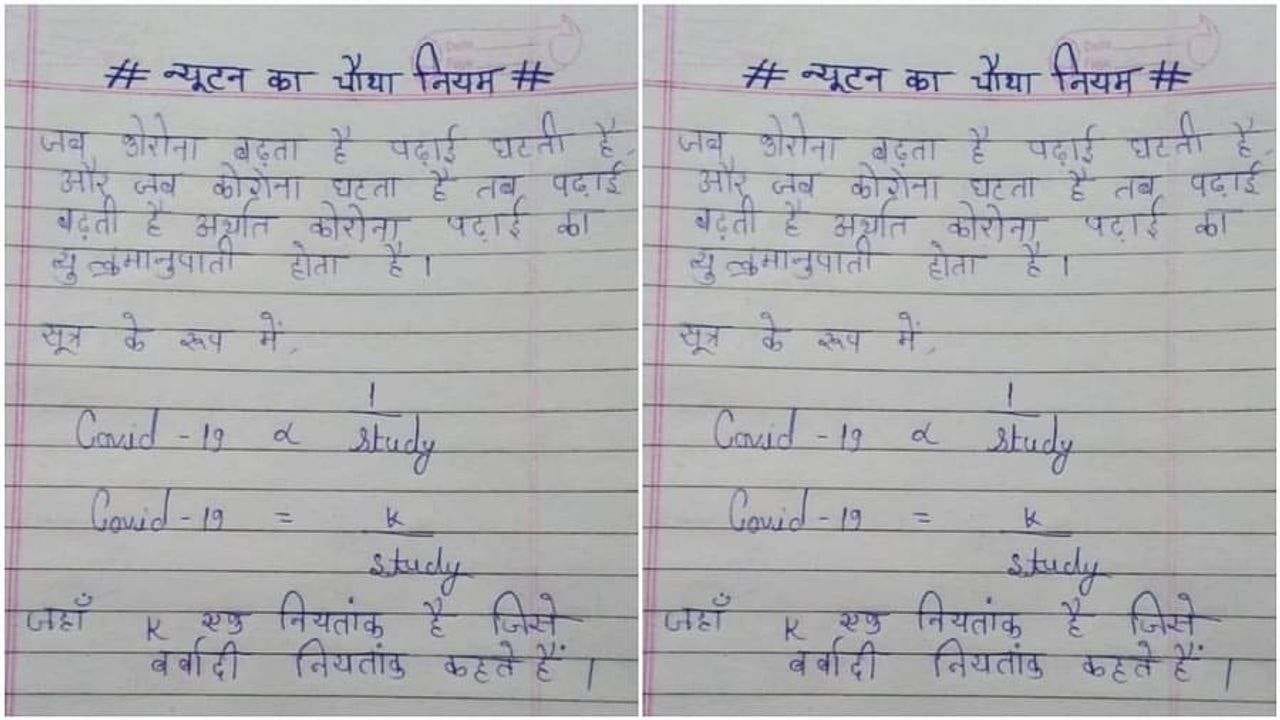 # न्यूटन का चौथा नियम #
जब कोरोना बढ़ता है पढ़ाई घटती है,
और जब कोरोना घटता है तब पढ़ाई
बढ़ती है अर्थात कोरोना पढ़ाई का
व्युत्क्रमानुपाती होता है।
सूत्र के रूप में,
Covid-19 ∝ 1/study
Covid-19 = k/study
जहाँ K एक नियतांक है जिसे
बर्बादी नियतांक कहते हैं।
# न्यूटन का चौथा नियम #
जब कोरोना बढ़ता है पढ़ाई घटती है,
और जब कोरोना घटता है तब पढ़ाई
बढ़ती है अर्थात कोरोना पढ़ाई का
व्युत्क्रमानुपाती होता है।
सूत्र के रूप में,
Covid-19 ∝ 1/study
Covid-19 = k/study
जहाँ K एक नियतांक है जिसे
बर्बादी नियतांक कहते हैं।